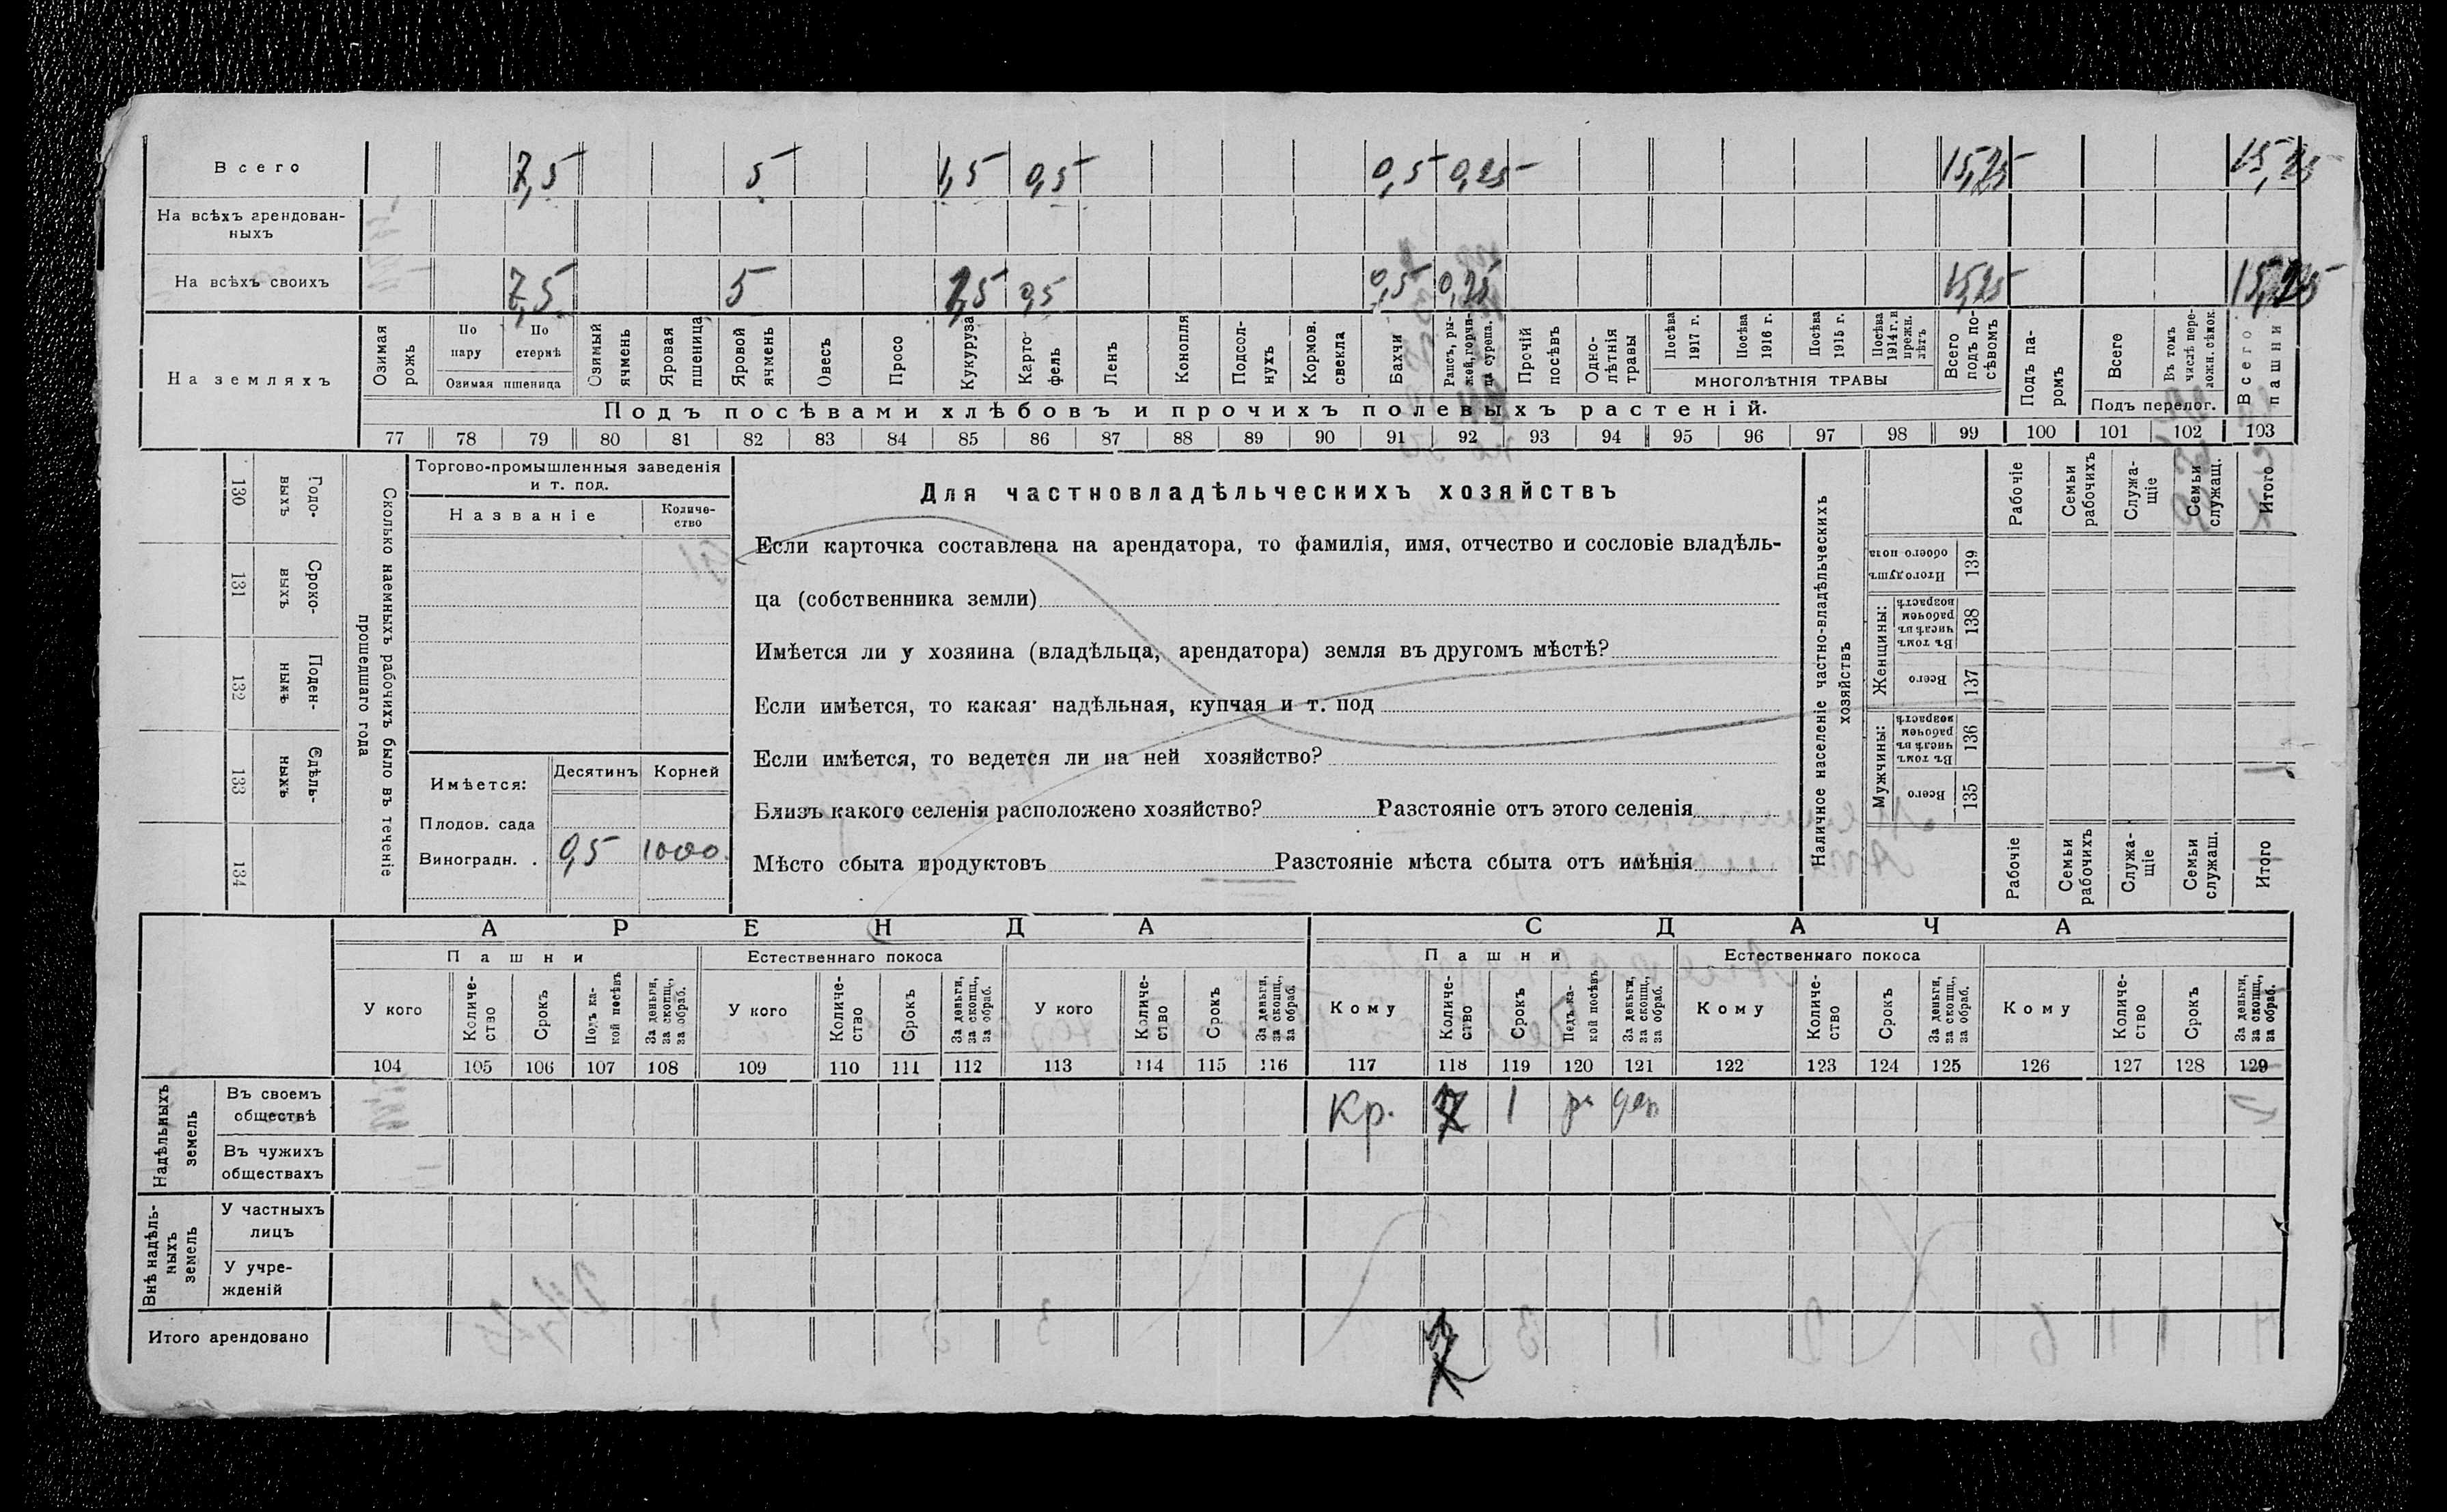 Всего 7,5 5 1,5 0,5 0,5 0,25 15,25 15,25
На всѣхъ арендован-
ныхъ
На всѣхъ своихъ 7,5 5 1,5 0,5 0,5 0,25 15,25 15,25
На земляхъ
Озимая рожь
По пару
По стернѣ
Озимая пшеница
Озимый ячмень
Яровая пшеница
Яровой ячмень
Овесъ
Просо
Кукуруза
Карто-
фель
Ленъ
Конопля
Подсол-
нухъ
Кормов. свекла
Бахчи
Рапсъ, ры-
жей, горчи-
ца сурепа.
Прочій посѣвъ
Одно-
лѣтнія травы
Посѣва 1917 г.
Посѣва 1916 г.
Посѣва 1915 г.
Посѣва 1914 г. и прежн. лѣтъ
МНОГОЛѢТНІЯ ТРАВЫ
Всего подъ по-
сѣвомъ
Подъ па-
ромъ
Всего
Въ томъ числѣ пере-
ложн. сѣнок.
Подъ перелог.
Всего пашни
Подъ посѣвами хлѣбовъ и прочихъ полевыхъ растеній.
77 78 79 80 81 82 83 84 85 86 87 88 89 90 91 92 93 94 95 96 97 98 99 100 101 102 103
Сколько наемныхъ рабочихъ было въ теченіе
прошедшаго года
Годо-
выхъ
130
Сроко-
выхъ
131
Поден-
ныхъ
132
Сдѣль-
ныхъ
133
134
Торгово-промышленныя заведенія
и т. под.
Названіе
Количе-
ство
Имѣется:
Десятинъ Корней
Плодов. сада
Виноградн. . 0,5 1000
Для частновладѣльческихъ хозяйствъ
Если карточка составлена на арендатора, то фамилія, имя, отчество и сословіе владѣль-
ца (собственника земли)
Имѣется ли у хозяина (владѣльца, арендатора) земля въ другомъ мѣстѣ?
Если имѣется, то какая надѣльная, купчая и т. под
Если имѣется, то ведется ли на ней хозяйство?
Близъ какого селенія расположено хозяйство? Разстояніе отъ этого селенія
Мѣсто сбыта продуктовъ Разстояніе мѣста сбыта отъ имѣнія
Наличное населеніе частно-владѣльческихъ
хозяйствъ
Рабочіе
Семьи рабочихъ
Служа-
щіе
Семьи служащ.
Итого
Итого душъ обоего пола 139
Женщины:
Въ томъ числѣ въ рабочемъ возрастѣ 138
Всего 137
Мужчины:
Въ томъ числѣ въ рабочемъ возрастѣ 136
Всего 135
Рабочіе
Семьи рабочихъ
Служа-
щіе
Семьи служащ.
Итого
АРЕНДА СДАЧА
Пашни Естественнаго покоса Пашни Естественнаго покоса
У кого
Количе-
ство
Срокъ
Подъ ка-
кой посѣвъ
За деньги, за скопщ., за обраб.
У кого
Количе-
ство
Срокъ
За деньги, за скопщ., за обраб.
У кого
Количе-
ство
Срокъ
За деньги, за скопщ., за обраб.
Кому
Количе-
ство
Срокъ
Подъ ка-
кой посѣвъ
За деньги, за скопщ., за обраб.
Кому
Количе-
ство
Срокъ
За деньги, за скопщ., за обраб.
Кому
Количе-
ство
Срокъ
За деньги, за скопщ., за обраб.
104 105 106 107 108 109 110 111 112 113 114 115 116 117 118 119 120 121 122 123 124 125 126 127 128 129
Надѣльныхъ земель
Въ своемъ
обществѣ Кр. 1
Въ чужихъ
обществахъ
Внѣ надѣль-
ныхъ земель
У частныхъ
лицъ
У учре-
жденій
Итого арендовано